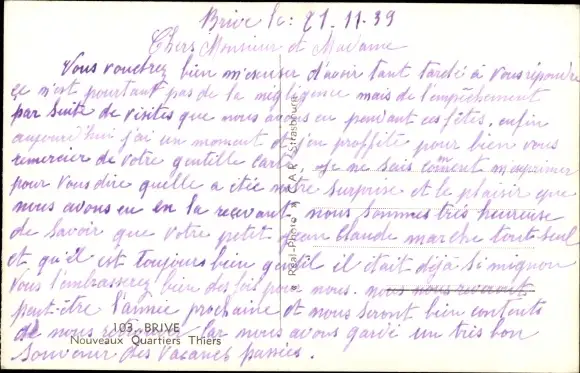 Brive le: 21-11-39
Chers Monsieur et Madame
Vous voudrez bien m'excuser d'avoir tant tardé à vous répondre
ce n'est pourtant pas de la négligence mais de l'empêchement
par suite de visites que nous avons eu pendant ces fêtes. enfin
aujourd'hui j'ai un moment et j'en proffite pour bien vous
remercier de votre gentille carte. Je ne sais coment m'exprimer
pour vous dire quelle a étée notre surprise et le plaisir que
nous avons eu en la recevant nous sommes très heureuse
de savoir que votre petit Jean Claude marche tout seul
et qu'il est toujours bien gentil il était déjà si mignon
Vous l'embrasserez bien des fois pour nous. nous nous reverrons
peut-être l'année prochaine et nous seront bien contents
de nous car nous avons gardé un très bon
Souvenir des Vacances passées.
103. BRIVE
Nouveaux Quartiers Thiers
Real-Photo C.A.P. Strasbourg